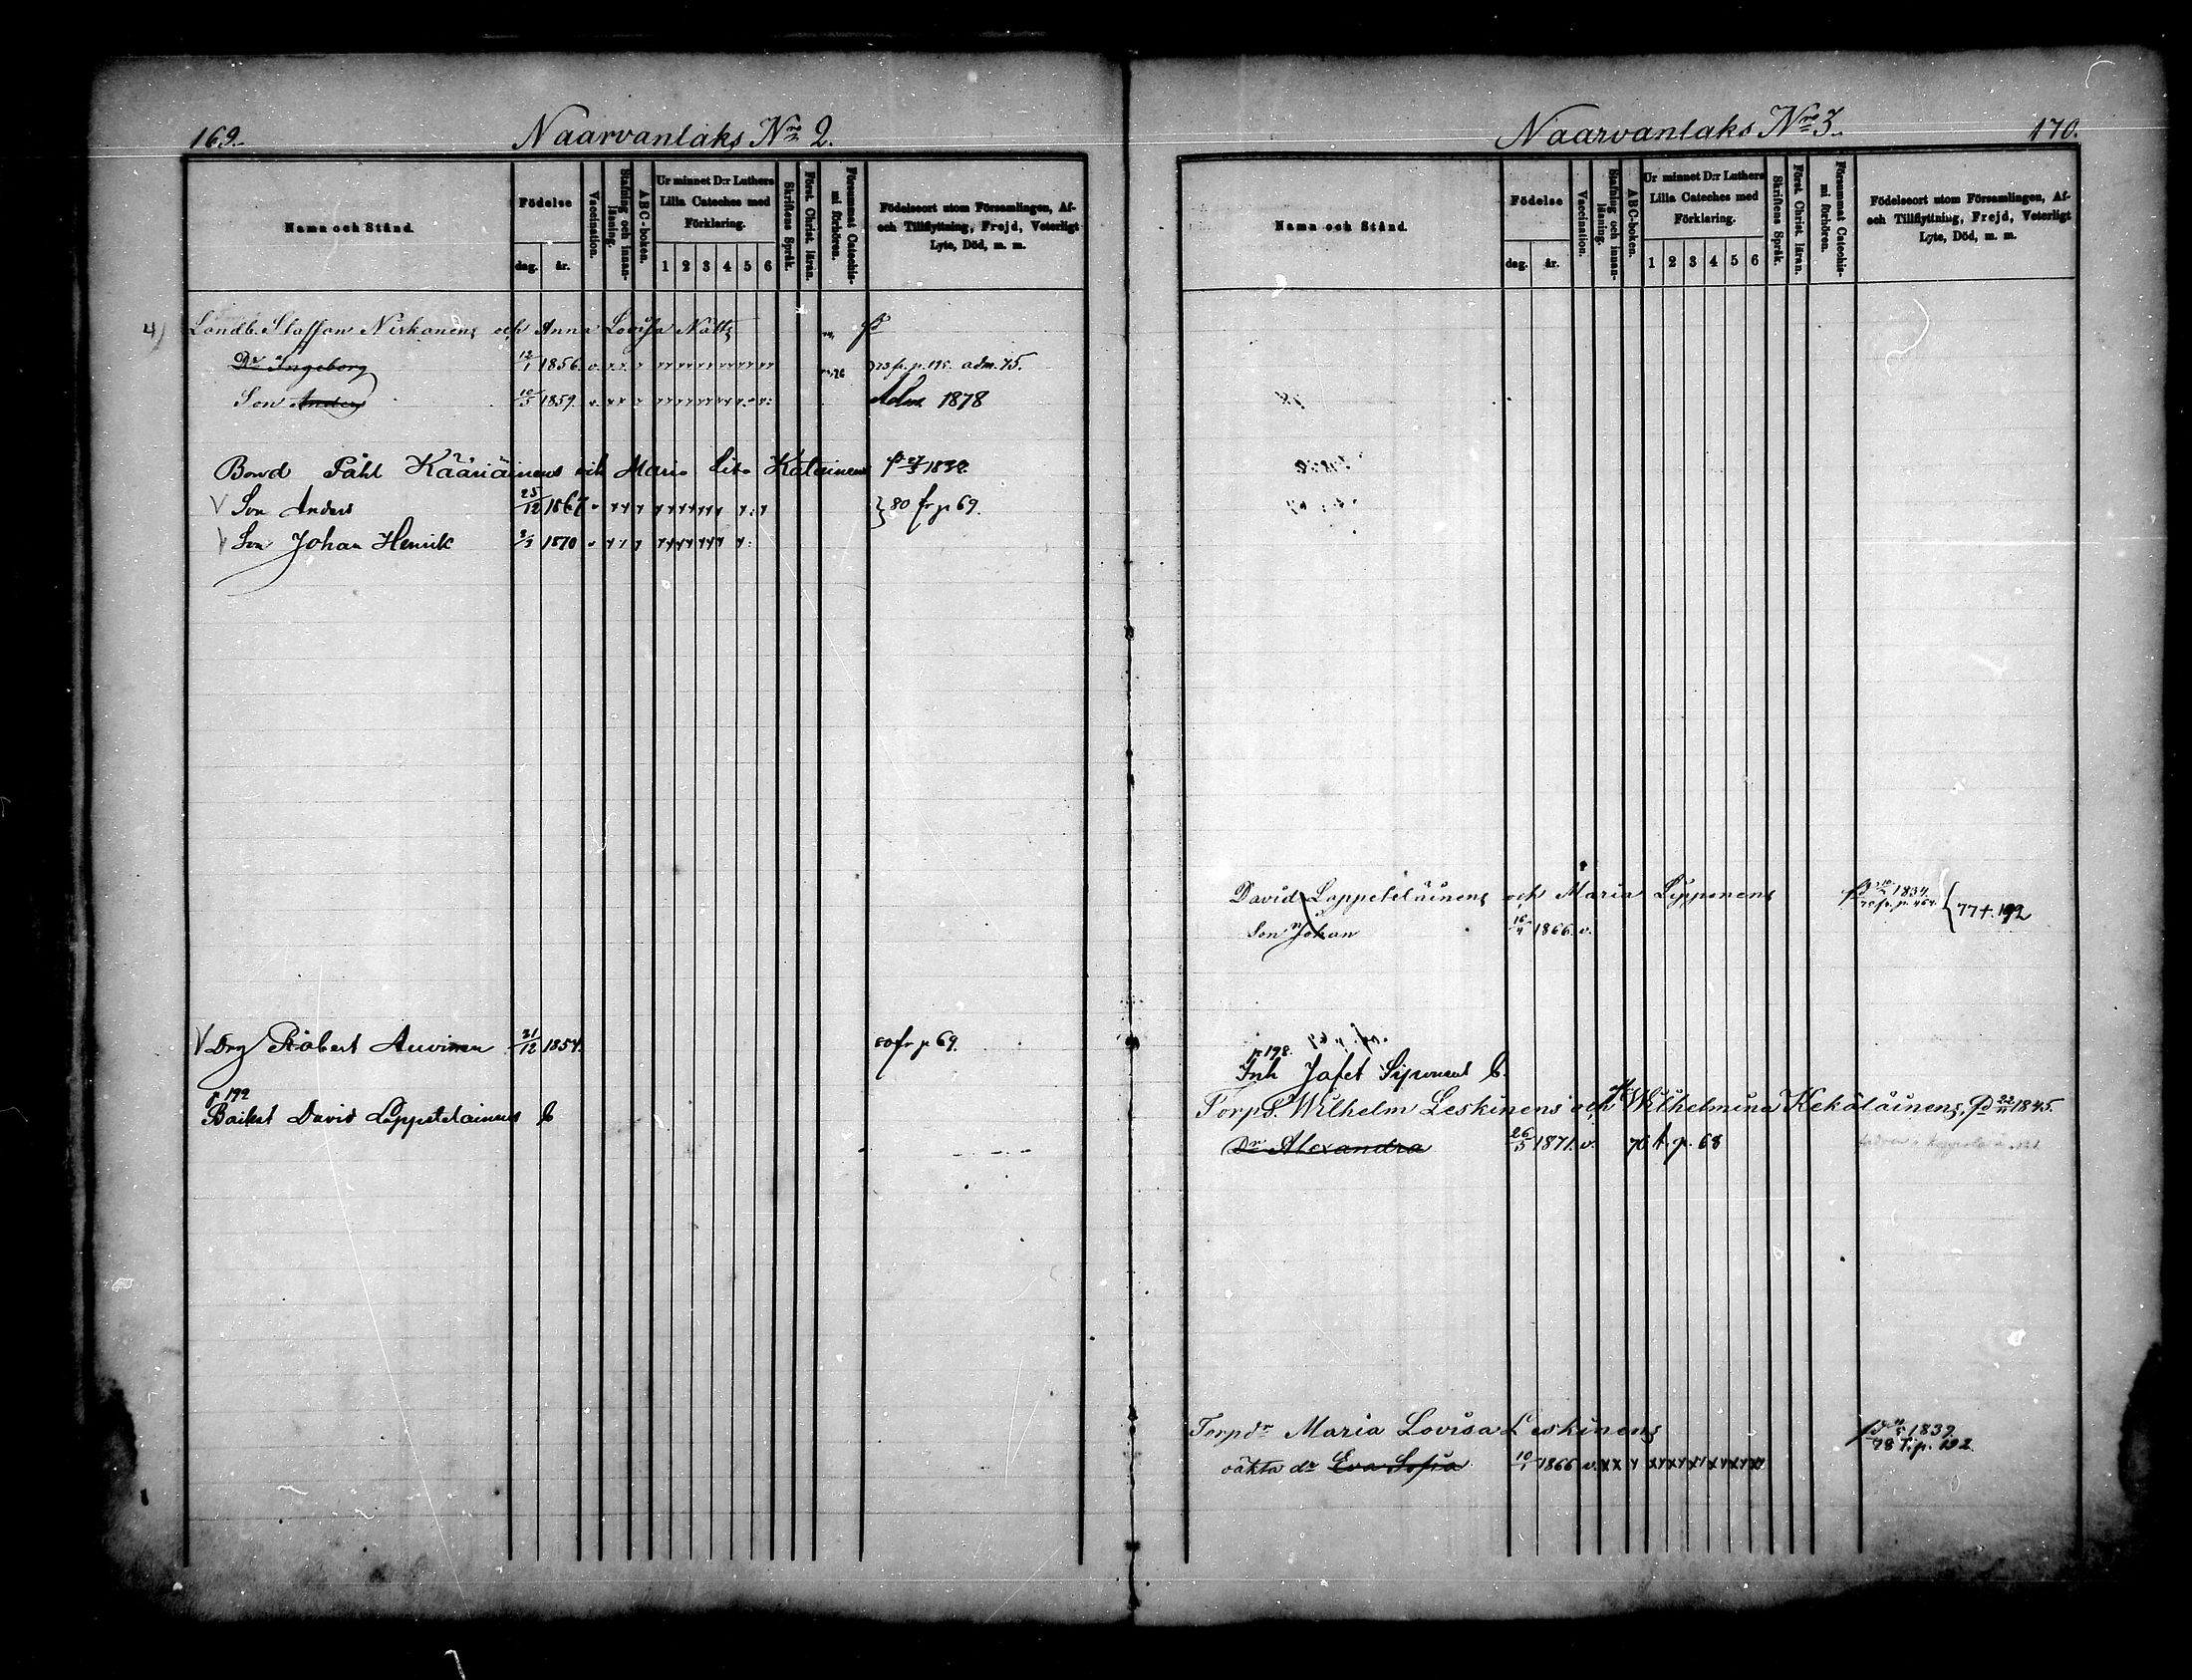 169.
Naarvanlaks Nro 2.
Namn och Stånd.
Födelse
dag. år.
Vaccination.
Stafning och innan-läsning.
ABC-boken.
Ur minnet D:r Luthers Lilla Cateches med Förklaring.
1 2 3 4 5 6
Skriftens Språk.
Först. Christ. läran.
Försummat Catechis-mi förhören.
Födelseort utom Församlingen, Af- och Tillflyttning, Frejd, Veterligt Lyte, Död, m. m.
4) Landb. Staffan Nirkonens och Anna Lovisa Nätts
Dr Ingeborg 12/1 1856. v. adm. 75.
Son Anders 10/3 1859. v. Adm 1878
Bond Påhl Kääriäinens och Maria Katainens 1832
V Son Anders 25/12 1867 } 80 fr p 69.
V Son Johan Henrik 3/3 1870
V Drg Robert Auvinen 31/12 1854. 80 fr p 69.
p 192
David Loppetelainens b
Naarvanlaks Nro 3.
170.
Namn och Stånd.
Födelse
dag. år.
Vaccination.
Stafning och innan-läsning.
ABC-boken.
Ur minnet D:r Luthers Lilla Cateches med Förklaring.
1 2 3 4 5 6
Skriftens Språk.
Först. Christ. läran.
Försummat Catechis-mi förhören.
Födelseort utom Församlingen, Af- och Tillflyttning, Frejd, Veterligt Lyte, Död, m. m.
David Loppeteläinens och Maria Lipponens 1834 { 77 t. 192
Son Johan 16/4 1866. v.
p 198.
Inh Jafet Siponens b.
Torp. Wilhelm Leskinens och Wilhelmina Kekäläinens, 22/11 1845.
Dr Alexandra 26/5 1871. v. 76 t. p. 68
Torpdr Maria Lovisa Leskinens 1839.
78 T. p. 192.
oäkta dr Eva Sofia 10/1 1866 v.